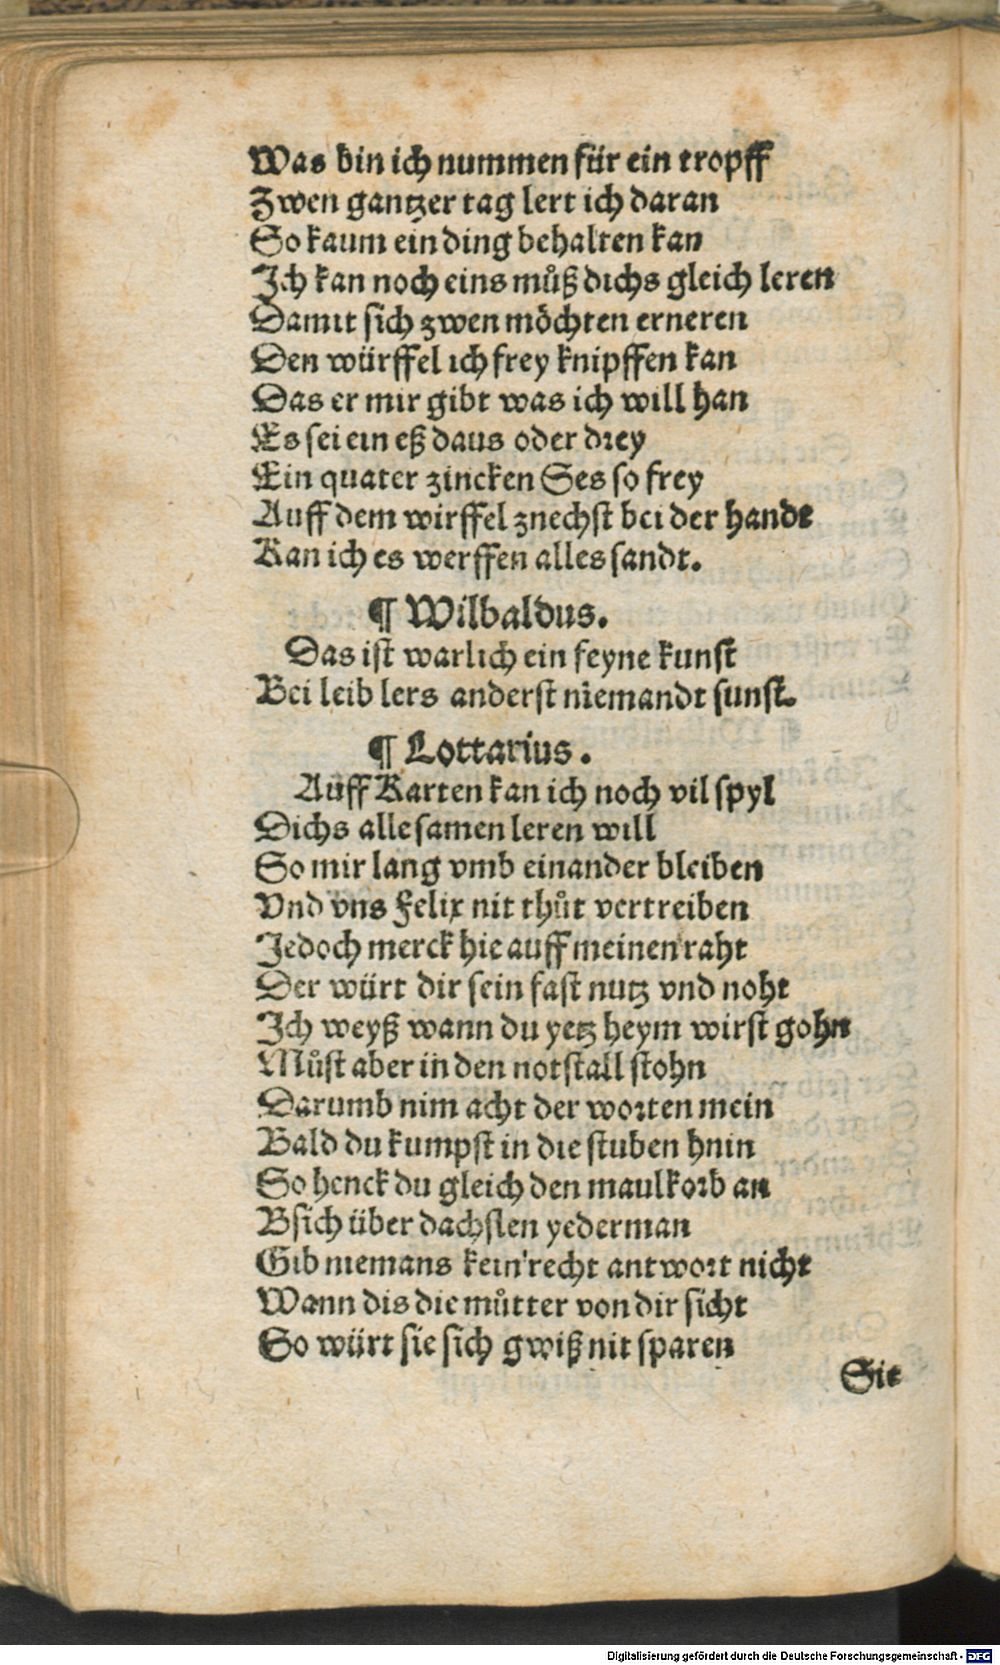 Was bin ich nummen für ein tropff
Zwen gantzer tag lert ich daran
So kaum ein ding behalten kan
Ich kan noch eins můß dichs gleich leren
Damit sich zwen möchten erneren
Den würffel ich frey knipffen kan
Das er mir gibt was ich will han
Es sei ein eß daus oder drey
Ein quater zincken Ses so frey
Auff dem wirffel znechst bei der handt
Kan ich es werffen alles sandt.
¶ Wilbaldus.
Das ist warlich ein feyne kunst
Bei leib lers anderst niemandt sunst.
¶ Lottarius.
Auff Karten kan ich noch vil spyl
Dichs alle samen leren will
So mir lang vmb einander bleiben
Vnd vns Felix nit thůt vertreiben
Jedoch merck hie auff meinen raht
Der würt dir sein fast nutz vnd noht
Ich weyß wann du yetz heym wirst gohn
Můst aber in den notstall stohn
Darumb nim acht der worten mein
Bald du kumpst in die stuben hnin
So henck du gleich den maulkorb an
Bsich über dachslen yederman
Gib niemans kein recht antwort nicht
Wann dis die můtter von dir sicht
So würt sie sich gwiß nit sparen
Sie
Digitalisierung gefördert durch die Deutsche Forschungsgemeinschaft - DFG